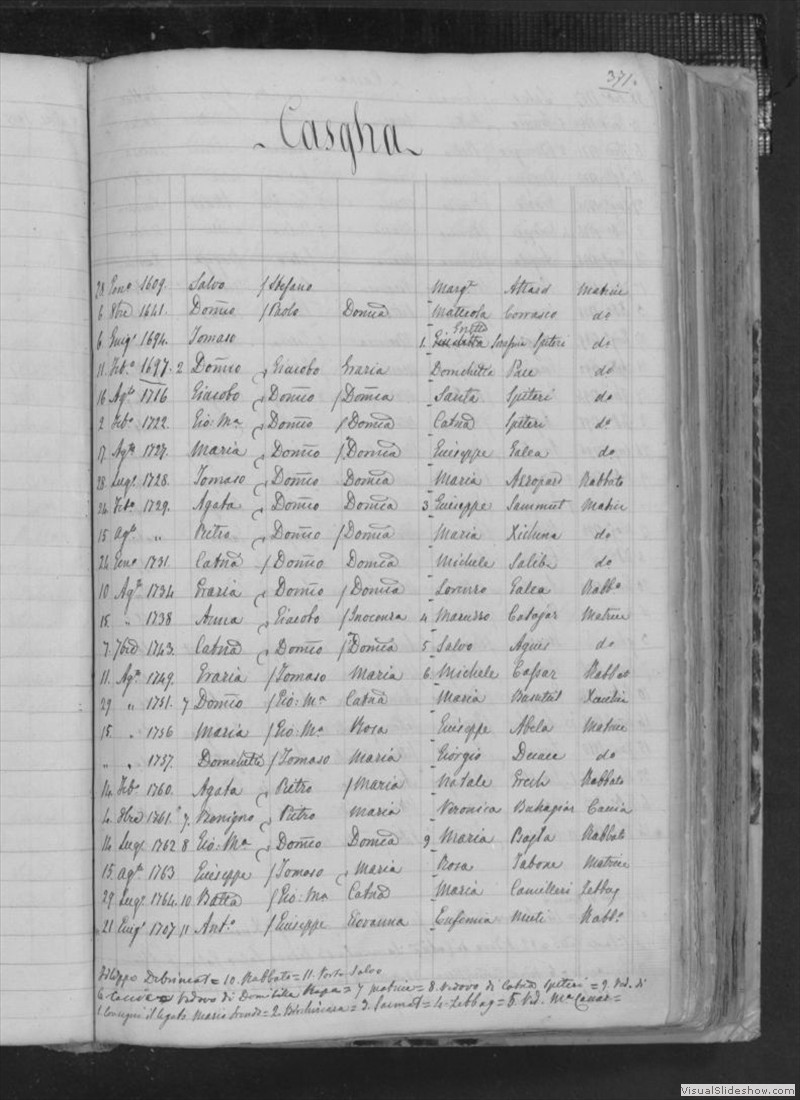 371.
Casgha
28 Genº 1609. Salvo / Stefano Margta Attard Matrice
6 8bre 1641. Domco / Paolo Domca Matteola Corrasco do
6 Giugº 1694. Tomaso 1. Serafina Spiteri do
11. Febº 1697. 2 Domco, Giacobo Grazia Domchetta Pace do
16 Agto 1716 Giacobo, Domco / Domca Santa Spiteri do
2 Febº 1722. Gio: Ma, Domco / Domca Catna Spiteri do
17. Agto 1727. Maria, Domco / Domca Giuseppe Galea do
28 Lugº 1728. Tomaso, Domco Domca Maria Azzopard Rabbato
24 Febº 1729. Agata, Domco Domca 3 Giuseppe Sammut Matrice
15 agto „ Pietro, Domco / Domca Maria Xicluna do
26 Genº 1731. Catna / Domco Domca Michele Saliba do
10 Agto 1734 Grazia, Domco / Domca Lorenzo Galea Rabbº
15. „ 1738 Anna, Giacobo / Inocenza 4 Maruzzo Calajar Matrice
7. 7bre 1743. Catna, Domco / Domca 5 Salvo Agius do
11. Agto 1749. Grazia / Tomaso Maria 6 Michele Cassar Rabbato
29 „ 1751. 7 Domco / Gio: Ma Catna Maria Busuttil
15. „ 1756 Maria / Gio: Ma Rosa Giuseppe Abela Matrice
„ „ 1757. Domchetta / Tomaso Maria Giorgio do
14. Febº 1760. Agata, Pietro / Maria Natale Grech Rabbato
4. 8bre 1761. 7. Benigno, Pietro Maria Veronica Buhagiar
14 Lugº 1762 8 Gio: Ma, Domco Domca 9 Maria Rabbato
15. agto 1763 Giuseppe / Tomaso, Maria Rosa Tabone Matrice
29 Lugº 1764. 10 Batta / Gio: Ma Catna Maria Camilleri Zebbug
21 Giugº 1707 11 Antº / Giuseppe Giovanna Eufemia Rabbº
Filippo Debrincat = 10. Rabbato = 11. Porto Salvo
Vedovo di = 7 Matrice = 8. Vedovo di Catna Spiteri = 9. Ved. di
= 4. Zebbug = 5. Ved. Ma
VisualSlideshow.com